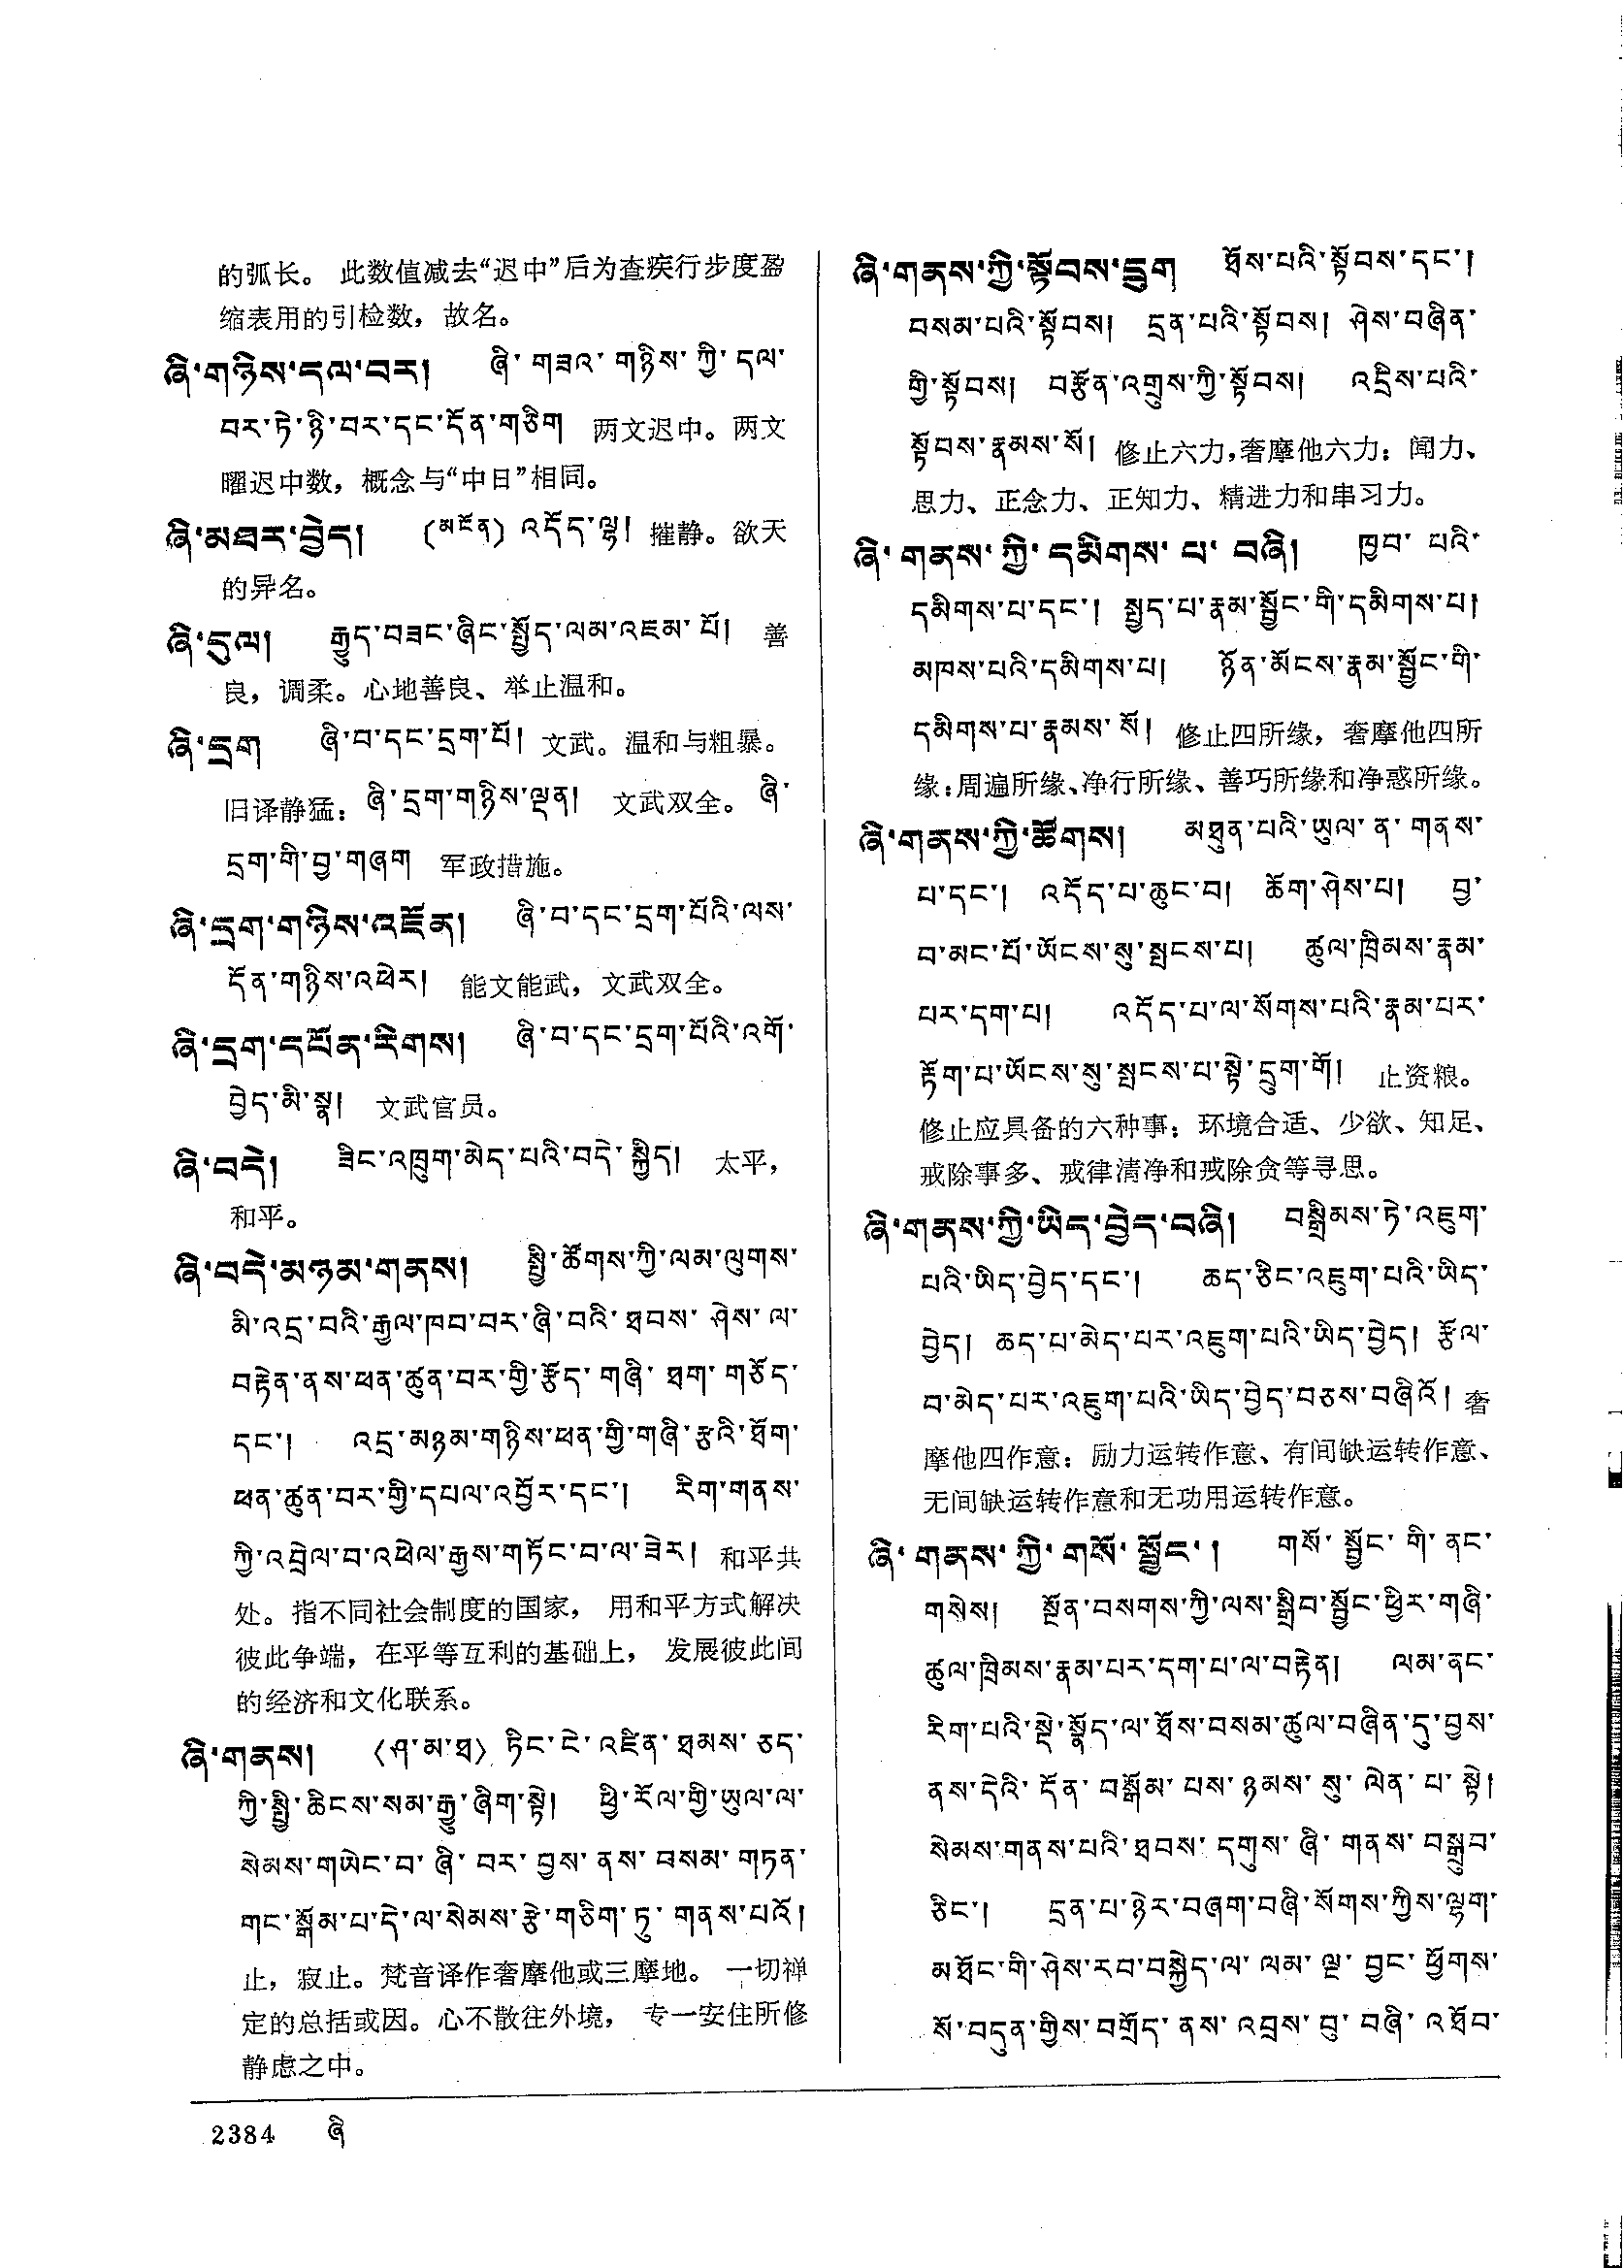 的弧长。 此数值减去“迟中”后为查疾行步度盈
缩表用的引检数，故名。
ཞི་གཉིས་དལ་བར། ཞི་ གཟའ་ གཉིས་ ཀྱི་ དལ་
བར་ཏེ་ཉི་བར་དང་དོན་གཅིག 两文迟中。两文
曜迟中数，概念与“中日”相同。
ཞི་མཐར་བྱེད། (མངོན) འདོད་ལྷ། 摧静。欲天
的异名。
ཞི་དུལ། རྒྱུད་བཟང་ཞིང་སྤྱོད་ལམ་འཇམ་པོ། 善
良，调柔。心地善良、举止温和。
ཞི་དྲག ཞི་བ་དང་དྲག་པོ། 文武。温和与粗暴。
旧译静猛：ཞི་དྲག་གཉིས་ལྡན། 文武双全。ཞི་
དྲག་གི་བྱ་གཞག 军政措施。
ཞི་དྲག་གཉིས་འཛོན། ཞི་བ་དང་དྲག་པོའི་ལས་
དོན་གཉིས་འཕེར། 能文能武，文武双全。
ཞི་དྲག་དཔོན་རིགས། ཞི་བ་དང་དྲག་པོའི་འགོ་
བྱེད་མི་སྣ། 文武官员。
ཞི་བདེ། ཟིང་འཁྲུག་མེད་པའི་བདེ་སྐྱིད། 太平，
和平。
ཞི་བདེ་མཉམ་གནས། སྤྱི་ཚོགས་ཀྱི་ལམ་ལུགས་
མི་འདྲ་བའི་རྒྱལ་ཁབ་བར་ཞི་བའི་ ཐབས་ ཤེས་ ལ་
བརྟེན་ནས་ཕན་ཚུན་བར་གྱི་རྩོད་ གཞི་ ཐག་ གཅོད་
དང་། འདྲ་མཉམ་གཉིས་ཕན་གྱི་གཞི་རྩའི་ཐོག་
ཕན་ཚུན་བར་གྱི་དཔལ་འབྱོར་དང་། རིག་གནས་
ཀྱི་འབྲེལ་བ་འཕེལ་རྒྱས་གཏོང་བ་ལ་ཟེར། 和平共
处。指不同社会制度的国家， 用和平方式解决
彼此争端，在平等互利的基础上， 发展彼此间
的经济和文化联系。
ཞི་གནས། 〈ཤ་མ་ཐ〉 ཏིང་ངེ་འཛིན་ ཐམས་ ཅད་
ཀྱི་སྤྱི་ཆིངས་སམ་རྒྱུ་ཞིག་སྟེ། ཕྱི་རོལ་གྱི་ཡུལ་ལ་
སེམས་གཡེང་བ་ ཞི་ བར་ བྱས་ ནས་ བསམ་ གཏན་
གང་སྒོམ་པ་དེ་ལ་སེམས་རྩེ་གཅིག་ ཏུ་ གནས་པའོ།
止，寂止。梵音译作奢摩他或三摩地。 一切禅
定的总括或因。心不散往外境， 专一安住所修
静虑之中。
ཞི་གནས་ཀྱི་སྟོབས་དྲུག ཐོས་པའི་སྟོབས་དང་།
བསམ་པའི་སྟོབས། དྲན་པའི་སྟོབས། ཤེས་བཞིན་
གྱི་སྟོབས། བརྩོན་འགྲུས་ཀྱི་སྟོབས། འདྲིས་པའི་
སྟོབས་རྣམས་སོ། 修止六力，奢摩他六力：闻力、
思力、正念力、正知力、精进力和串习力。
ཞི་ གནས་ ཀྱི་ དམིགས་ པ་ བཞི། ཁྱབ་ པའི་
དམིགས་པ་དང་། སྤྱད་པ་རྣམ་སྦྱོང་གི་དམིགས་པ།
མཁས་པའི་དམིགས་པ། ཉོན་མོངས་རྣམ་སྦྱོང་གི་
དམིགས་པ་རྣམས་ སོ། 修止四所缘，奢摩他四所
缘：周遍所缘、净行所缘、善巧所缘和净惑所缘。
ཞི་གནས་ཀྱི་ཚོགས། མཐུན་པའི་ཡུལ་ ན་ གནས་
པ་དང་། འདོད་པ་ཆུང་བ། ཆོག་ཤེས་པ། བྱ་
བ་མང་པོ་ཡོངས་སུ་སྤངས་པ། ཚུལ་ཁྲིམས་རྣམ་
པར་དག་པ། འདོད་པ་ལ་སོགས་པའི་རྣམ་པར་
རྟོག་པ་ཡོངས་སུ་སྤངས་པ་སྟེ་དྲུག་གོ། 止资粮。
修止应具备的六种事：环境合适、少欲、知足、
戒除事多、戒律清净和戒除贪等寻思。
ཞི་གནས་ཀྱི་ཡིད་བྱེད་བཞི། བསྒྲིམས་ཏེ་འཇུག་
པའི་ཡིད་བྱེད་དང་། ཆད་ཅིང་འཇུག་པའི་ཡིད་
བྱེད། ཆད་པ་མེད་པར་འཇུག་པའི་ཡིད་བྱེད། རྩོལ་
བ་མེད་པར་འཇུག་པའི་ཡིད་བྱེད་བཅས་བཞིའོ། 奢
摩他四作意：励力运转作意、有间缺运转作意、
无间缺运转作意和无功用运转作意。
ཞི་ གནས་ ཀྱི་ གསོ་ སྦྱོང་། གསོ་ སྦྱོང་ གི་ ནང་
གསེས། སྔོན་བསགས་ཀྱི་ལས་སྒྲིབ་སྦྱོང་ཕྱིར་གཞི་
ཚུལ་ཁྲིམས་རྣམ་པར་དག་པ་ལ་བརྟེན། ལམ་ནང་
རིག་པའི་སྡེ་སྣོད་ལ་ཐོས་བསམ་ཚུལ་བཞིན་དུ་བྱས་
ནས་དེའི་ དོན་ བསྒོམ་ པས་ ཉམས་ སུ་ ལེན་ པ་ སྟེ།
སེམས་གནས་པའི་ཐབས་ དགུས་ ཞི་ གནས་ བསྒྲུབ་
ཅིང་། དྲན་པ་ཉེར་བཞག་བཞི་སོགས་ཀྱིས་ལྷག་
མཐོང་གི་ཤེས་རབ་བསྐྱེད་ལ་ ལམ་ ལྔ་ བྱང་ ཕྱོགས་
སོ་བདུན་གྱིས་བགྲོད་ ནས་ འབྲས་ བུ་ བཞི་ འཐོབ་
2384 ཞི